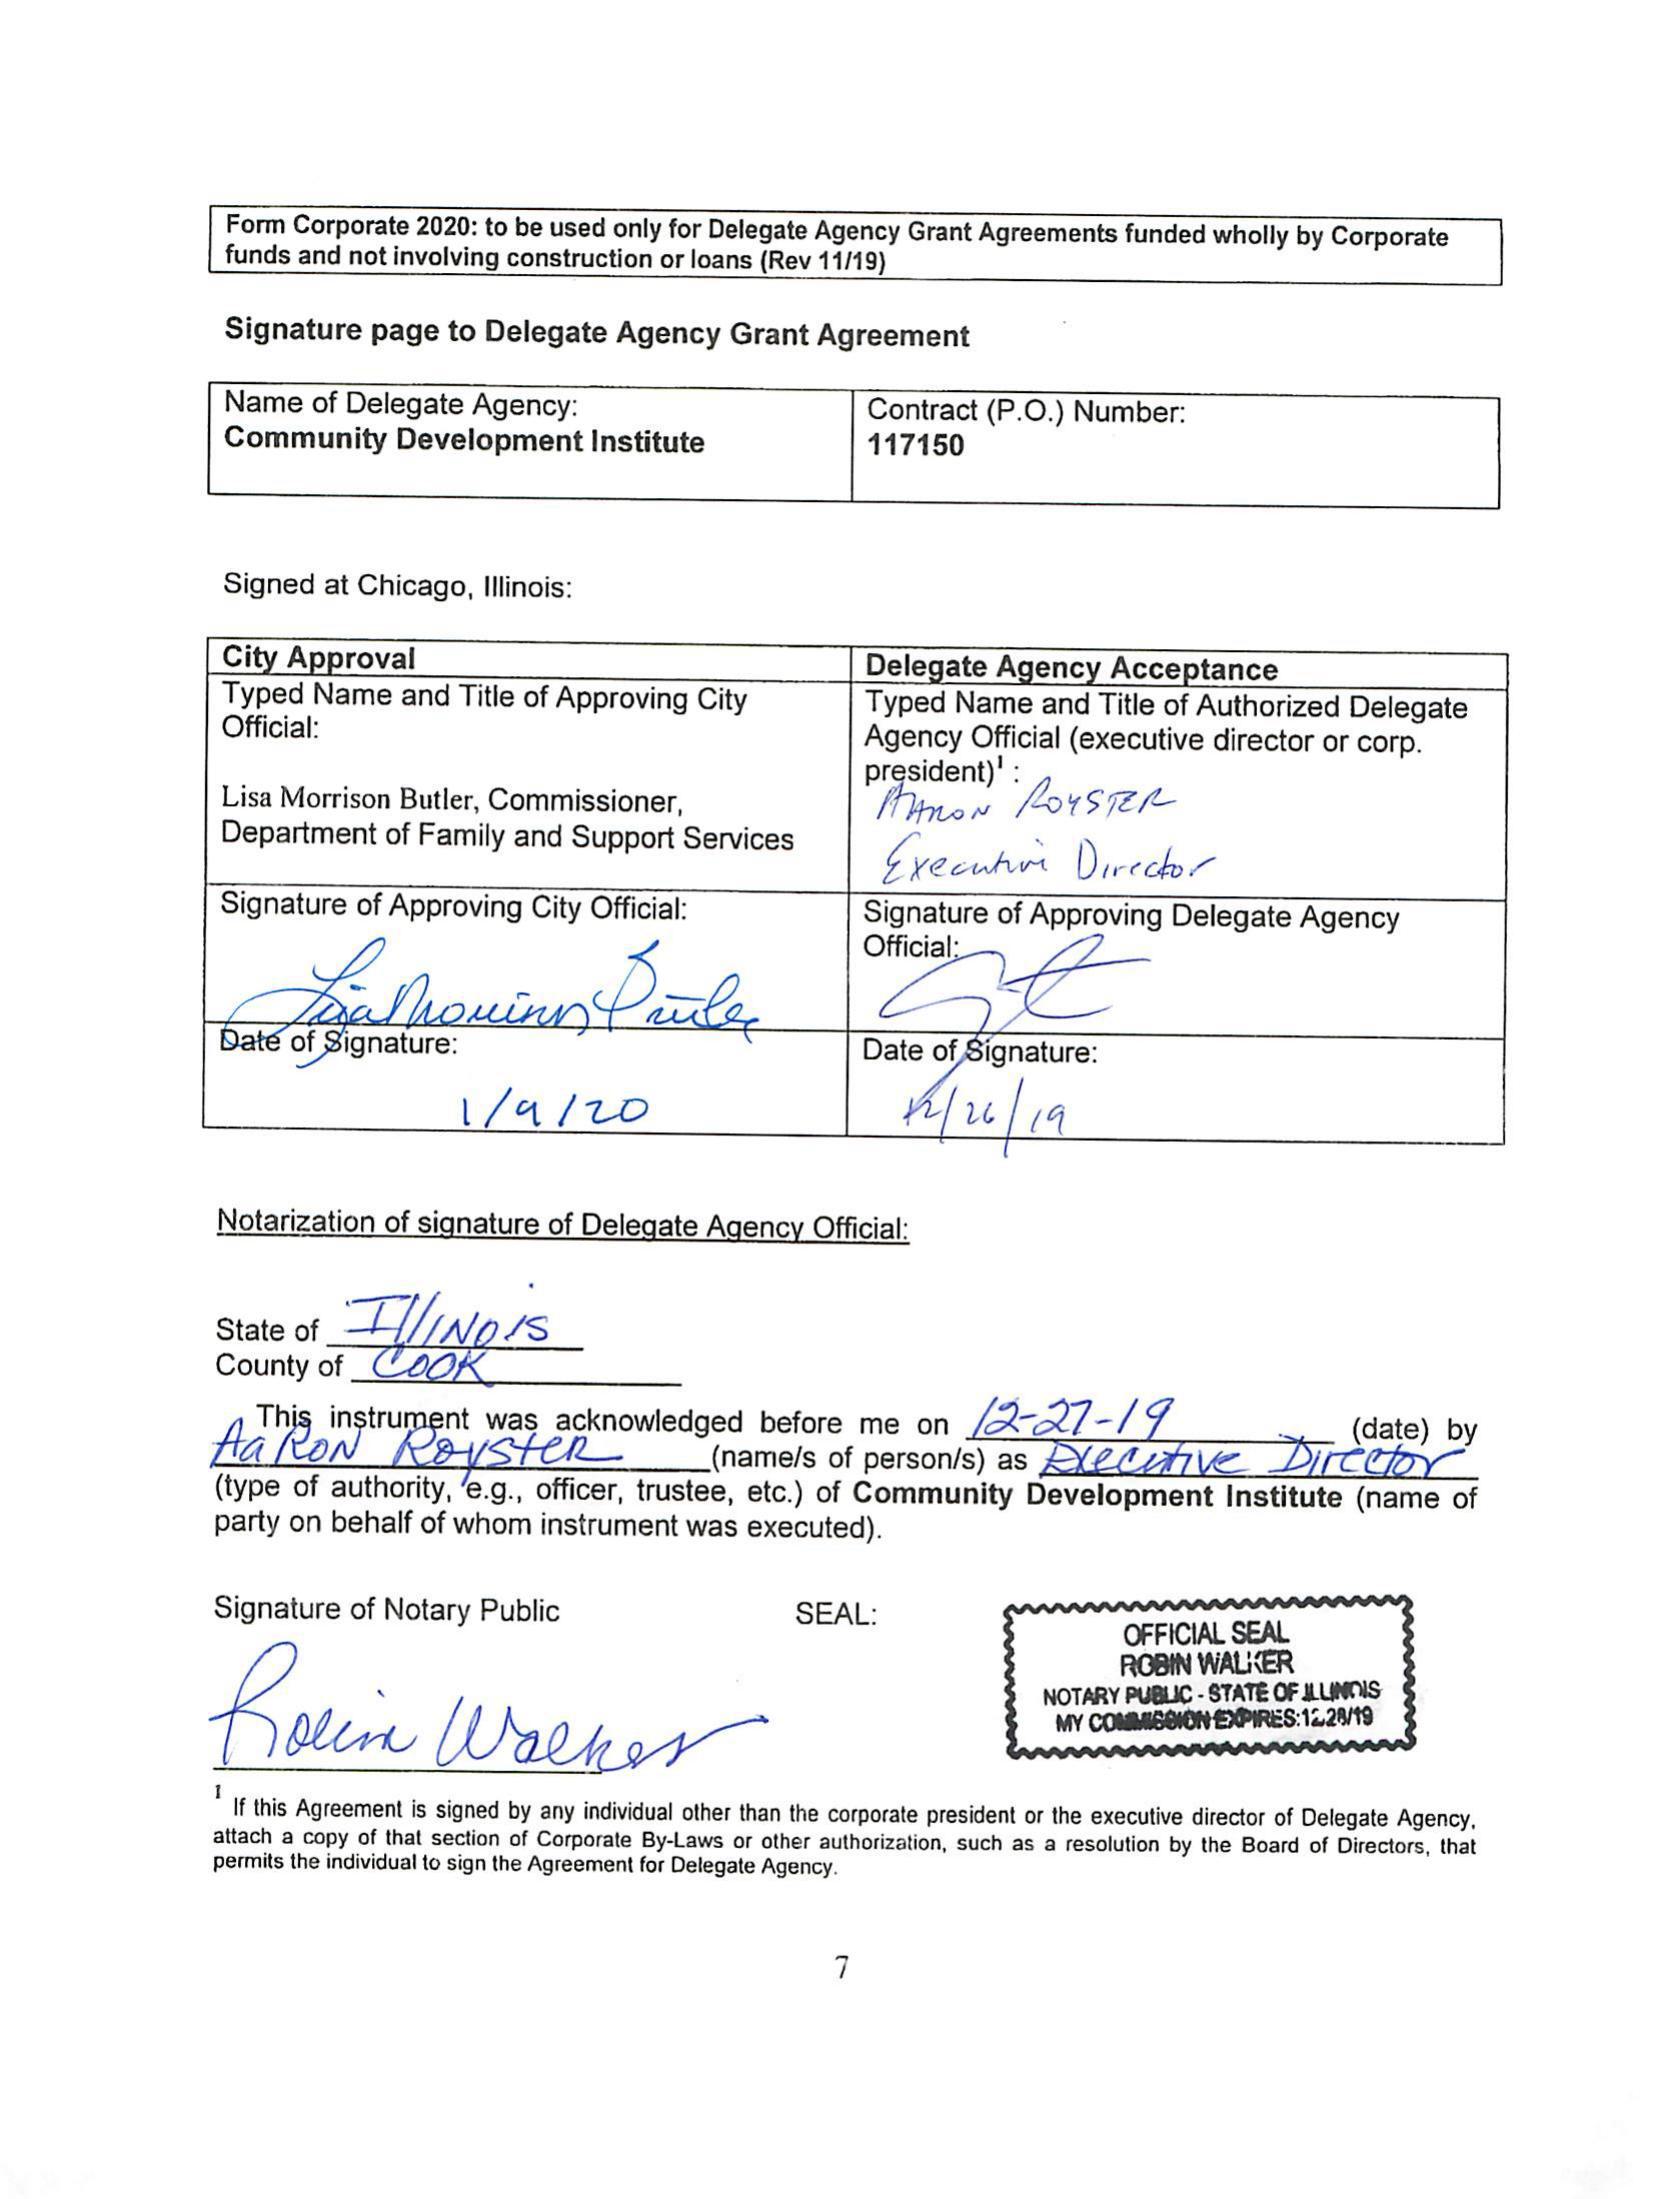 Form Corporate 2020: to be used only for Delegate Agency Grant Agreements funded wholly by Corporate
funds and not involving construction or loans (Rev 11/19)
Signature page to Delegate Agency Grant Agreement
Name of Delegate Agency:
Community Development Institute
Contract (P.O.) Number:
117150
Signed at Chicago, Illinois:
City Approval
Typed Name and Title of Approving City
Official:
Lisa Morrison Butler, Commissioner,
Department of Family and Support Services
Signature of Approving City Official:
Lisa Morrison Butler
Date of Signature:
1/9/20
Delegate Agency Acceptance
Typed Name and Title of Authorized Delegate
Agency Official (executive director or corp.
president)¹ :
AARON ROYSTER
Executive Director
Signature of Approving Delegate Agency
Official:
Date of Signature:
12/26/19
Notarization of signature of Delegate Agency Official:
State of ILLINOIS
County of COOK
This instrument was acknowledged before me on 12-27-19 (date) by
AaRON ROYSTER (name/s of person/s) as Executive Director
(type of authority, e.g., officer, trustee, etc.) of Community Development Institute (name of
party on behalf of whom instrument was executed).
Signature of Notary Public
SEAL:
Robin Walker
OFFICIAL SEAL
ROBIN WALKER
NOTARY PUBLIC - STATE OF ILLINOIS
MY COMMISSION EXPIRES:12/28/19
¹ If this Agreement is signed by any individual other than the corporate president or the executive director of Delegate Agency,
attach a copy of that section of Corporate By-Laws or other authorization, such as a resolution by the Board of Directors, that
permits the individual to sign the Agreement for Delegate Agency.
7